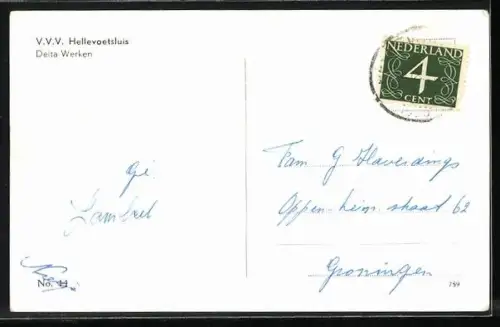 V.V.V. Hellevoetsluis
Delta Werken
NEDERLAND
4
CENT
Fam G Haverdings
Oppenheim straat 62
Groningen
No. 44
759